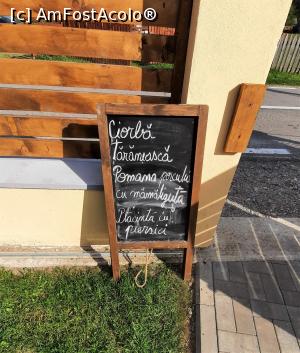 [c] AmFostAcolo®
Ciorbă
Țărănească
Pomana porcului
cu mămăliguța
Plăcintă cu
piersici